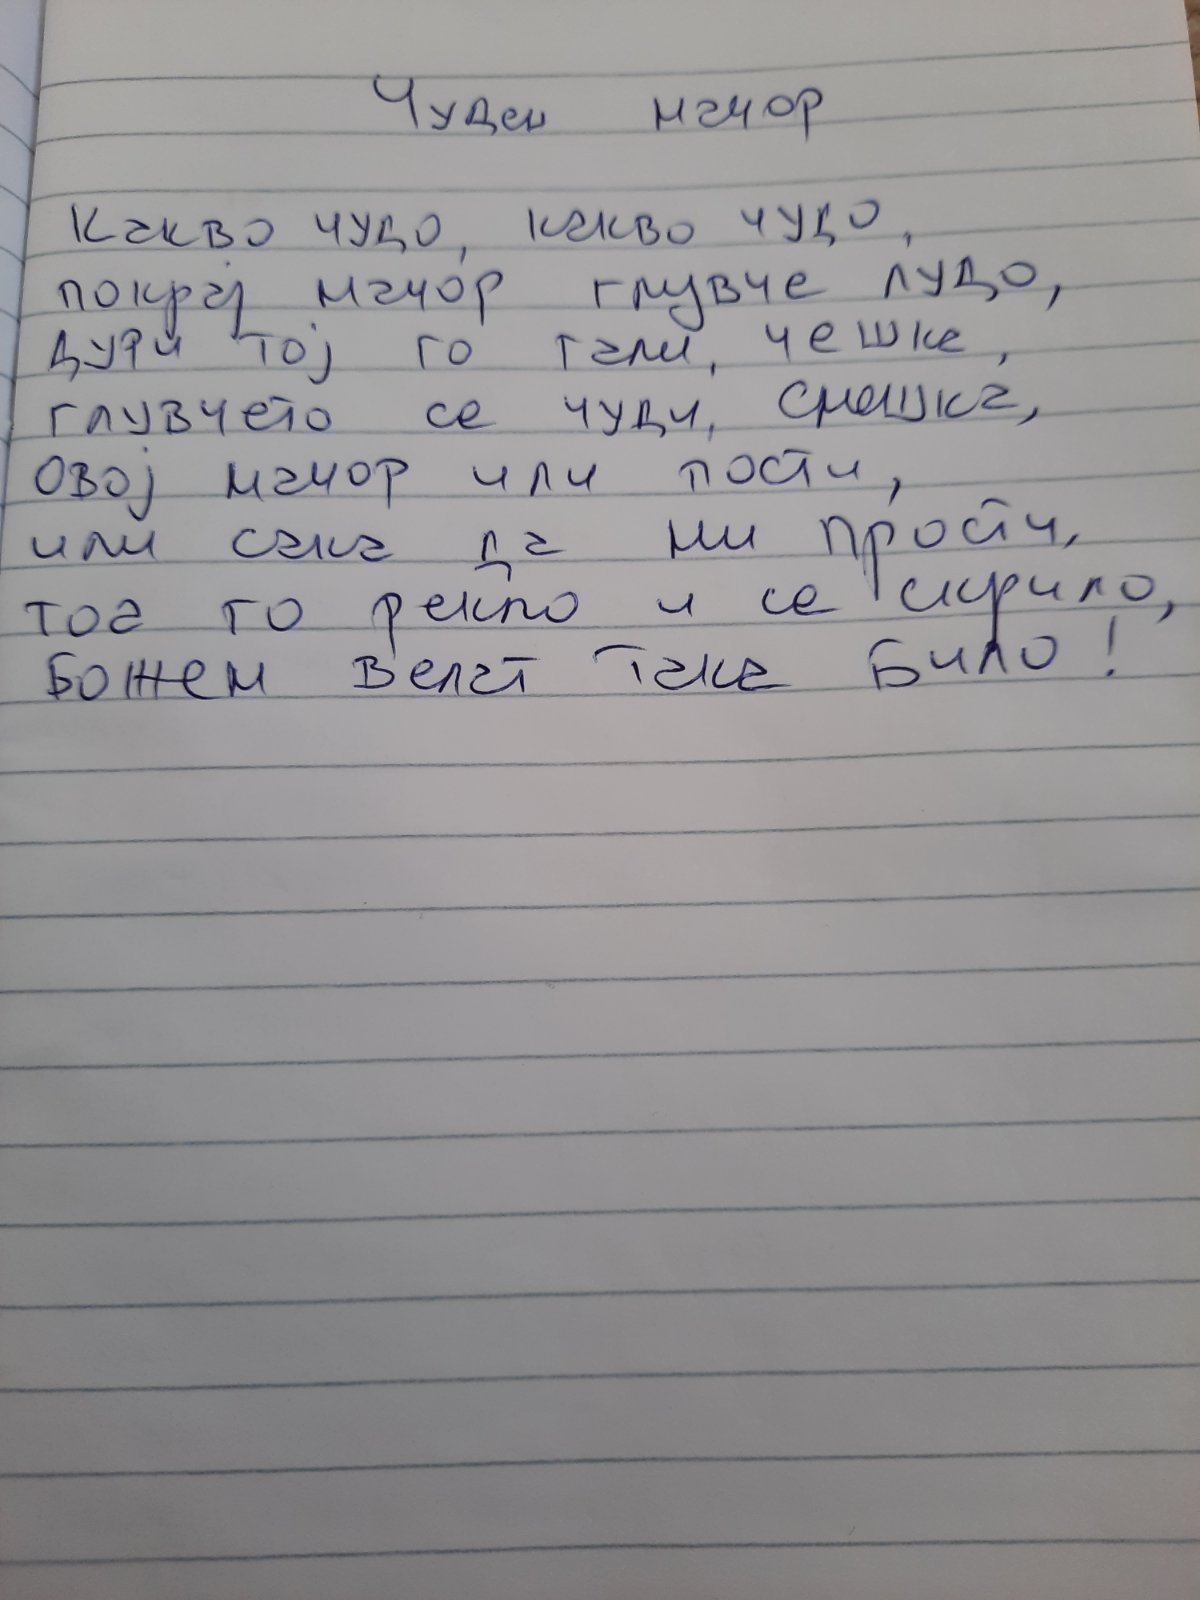 Чуден мачор
Какво чудо, какво чудо,
покрај мачор глувче лудо,
дури тој го гали, чешка,
глувчето се чуди, смешка,
овој мачор или пости,
или сака да ни прости,
тоа го рекло и се скрило,
Божем велат така било!